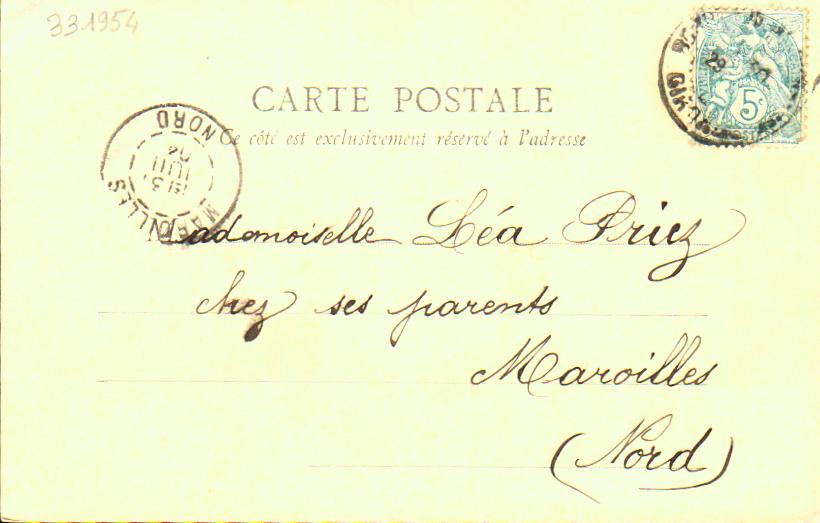 331954
5c
CARTE POSTALE
Ce côté est exclusivement réservé à l'adresse
MAROILLES
NORD
04
Mademoiselle Léa Priez
chez ses parents
Maroilles
(Nord)